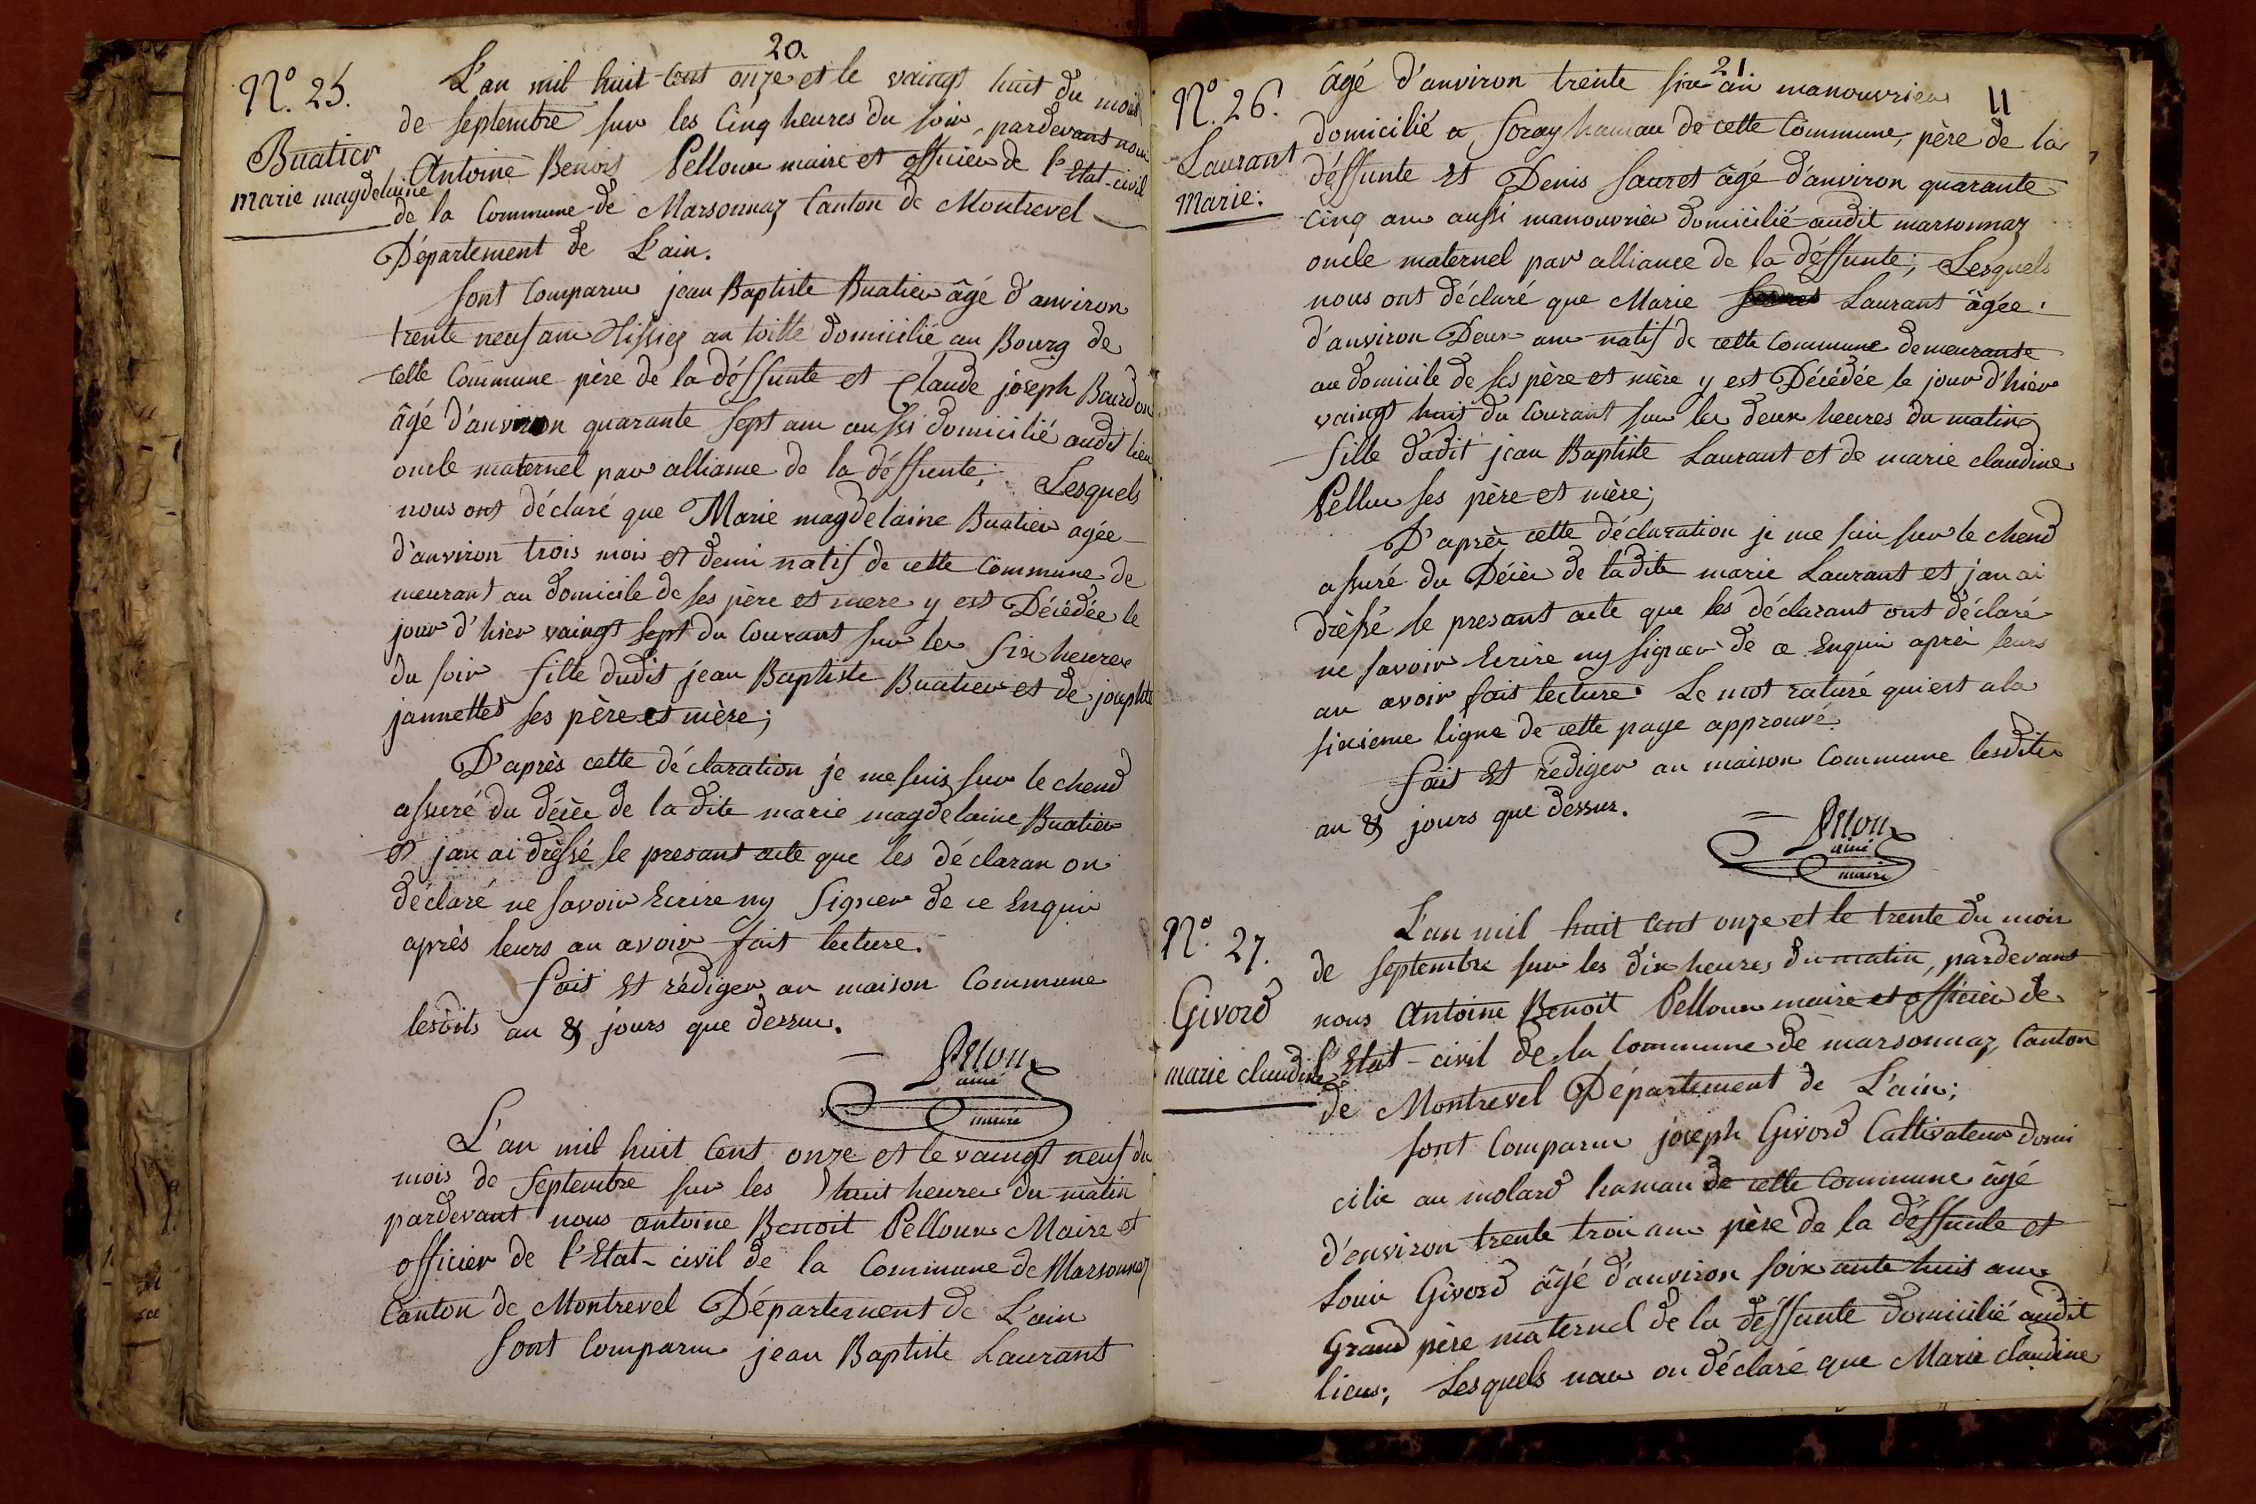 20.
N.° 25.
Buatier
marie magdelaine
L'an mil huit cent onze et le vaingt huit du mois
de septembre sur les cinq heures du soir, pardevant nous
Antoine Benoit Pelloux maire et officier de l'Etat-civil
de la Commune de Marsonnaz Canton de Montrevel
Département de L'ain.
sont comparus jean Baptiste Buatier âgé d'anviron
trente neuf ans Tissier an toille domicilié au Bourg de
cette Commune père de la déffunte et Claude joseph Bourdon
âgé d'anviron quarante sept ans aussi domicilié audit lieu
oncle maternel par alliance de la déffunte; Lesquels
nous ont déclaré que Marie magdelaine Buatier agée
d'anviron trois mois et demi natif de cette Commune de
meurant au domicile de ses père et mere y est Décédée le
jour d'hier vaingt sept du Courant sur les six heures
du soir fille dudit jean Baptiste Buatier et de josephte
jannettet ses père et mère;
D'après cette déclaration je me suis sur le chend
assuré du décès de la dite marie magdelaine Buatier
et j'an ai dressé le presant acte que les déclaran on
déclaré ne savoir Ecrire ny Signer de ce Enquis
après leurs an avoir fait lecture.
fait Et rédiger an maison Commune
lesdits an & jours que dessus.
Pelloux
ainé
maire
L'an mil huit Cent onze et le vaingt neuf du
mois de Septembre sur les huit heures du matin
pardevant nous antoine Benoit Pelloux Maire et
officier de l'Etat-civil de la Commune de Marsonnaz
Canton de Montrevel Département de L'ain
sont comparus jean Baptiste Laurant
21.
11
N.° 26.
Laurant
Marie:
âgé d'anviron trente six an manouvrier
domicilié a Foray hamau de cette Commune, père de la
déffunte Et Denis Sauret âgé d'anviron quarante
cinq ans aussi manouvrier domicilié audit marsonnaz
oncle maternel par alliance de la déffunte; Lesquels
nous ont déclaré que Marie Laurant âgée
d'anviron Deux ans natif de cette Commune demeurante
au domicile de ses père et mère y est Décédée le jour d'hier
vaingt huit du Courant sur les deux heures du matin
fille dudit jean Baptiste Laurant et de marie claudine
Pellus ses père et mère;
D'après cette déclaration je me suis sur le chend
assuré du Décès de ladite marie Laurant et j'an ai
dréssé le presant acte que les déclarant ont déclaré
ne savoir Ecrire ny signer de ce Enquis après leurs
an avoir fait lecture. Le mot raturé qui est a la
sixieme ligne de cette page approuvé.
fait Et rédiger an maison Commune lesdits
an & jours que dessus.
Pelloux
ainé
maire
N.° 27.
Givord
marie claudine
L'an mil huit Cent onze et le trente du mois
de septembre sur les dix heures du matin, pardevant
nous Antoine Benoit Pelloux maire et officier de
l'Etat-civil de la Commune de marsonnaz, Canton
de Montrevel Département de L'ain;
sont comparus joseph Givord Cultivateur domi
cilié au molard hamau de cette Commune âgé
d'environ trente trois ans père de la déffunte et
Louis Givord âgé d'anviron soixante huit ans
Grand père maternel de la déffunte domicilié audit
lieus; Lesquels nous on déclaré que Marie claudine